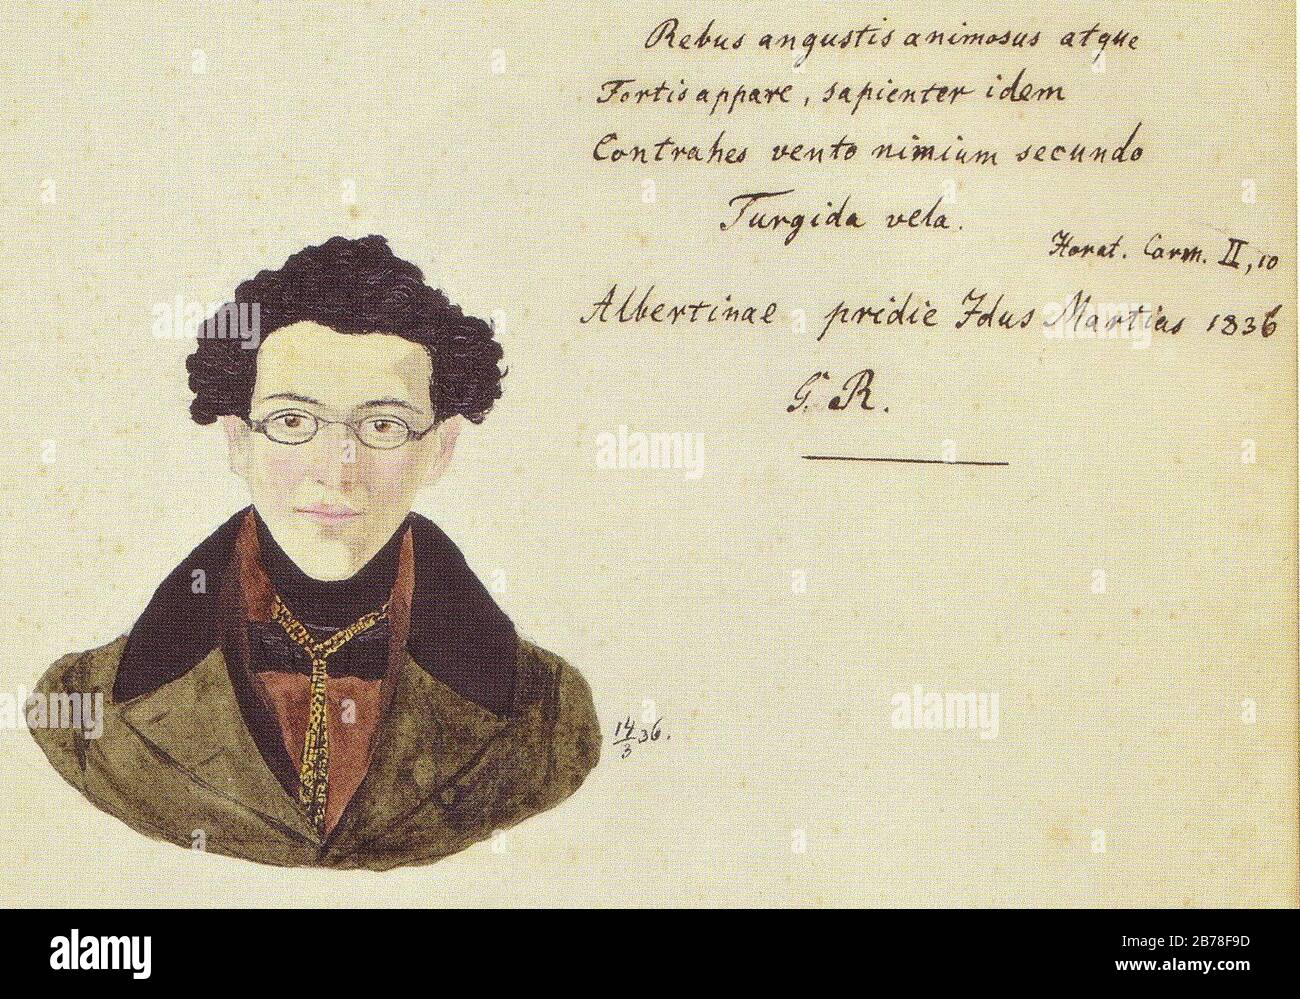 Rebus angustis animosus atque
Fortis appare, sapienter idem
Contrahes vento nimium secundo
Turgida vela.
Horat. Carm. II, 10
Albertinae pridie Idus Martias 1836
G. R.
14/3 36.
alamy
alamy
alamy
alamy
alamy
alamy
alamy
Image ID: 2B78F9D
www.alamy.com